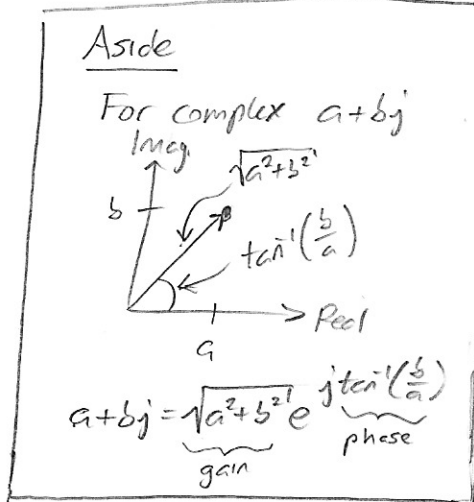 Aside
For complex a+bj
Imag.
√(a²+b²)
b
tan⁻¹(b/a)
Real
a
a+bj = √(a²+b²) e^(j tan⁻¹(b/a))
gain phase